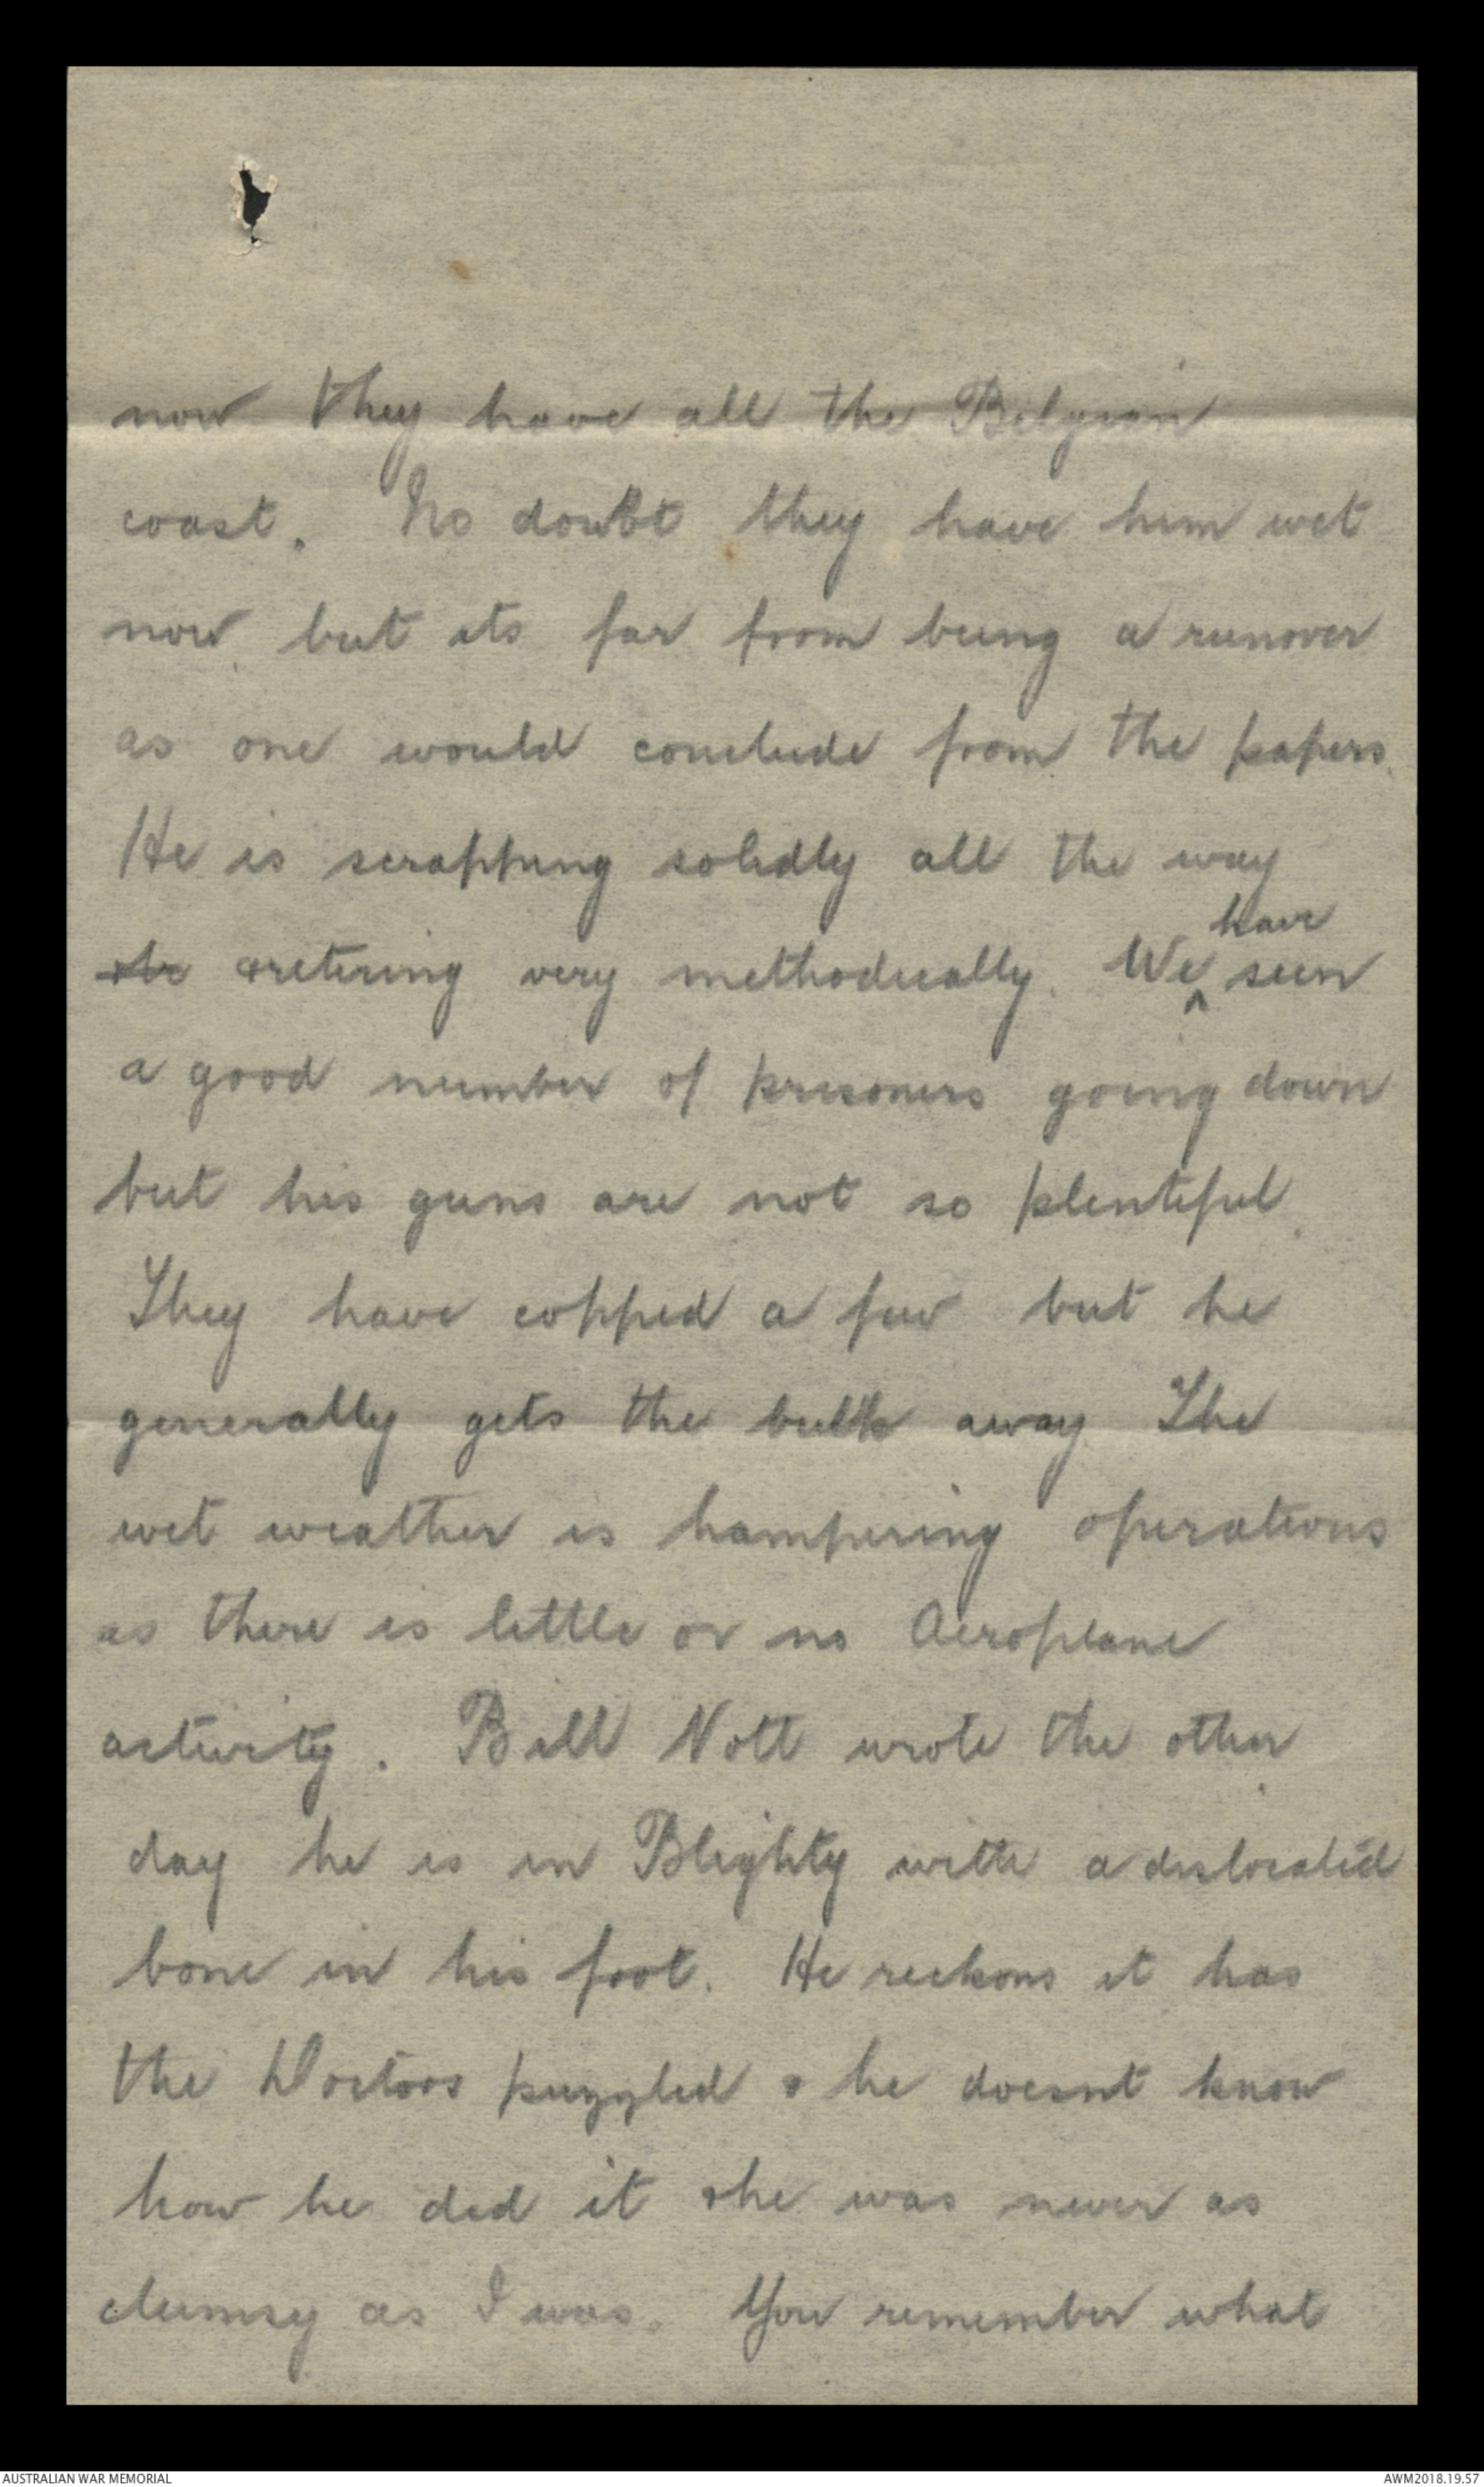 now they have all the Belgian
coast. No doubt they have him wet
now but its far from being a runover
as one would conclude from the papers.
He is scrapping solidly all the way
have
&retiring very methodically. We ^ seen
a good number of prisoners going down
but his guns are not so plentiful.
They have copped a few but he
generally gets the bulk away. The
wet weather is hampering operations
as there is little or no Aeroplane
activity. Bill Nott wrote the other
day he is in Blighty with a dislocated
bone in his foot. He reckons it has
the Doctors puzzled & he doesnt know
how he did it &he was never as
clumsy as I was. You remember what
AUSTRALIAN WAR MEMORIAL
AWM2018.19.57